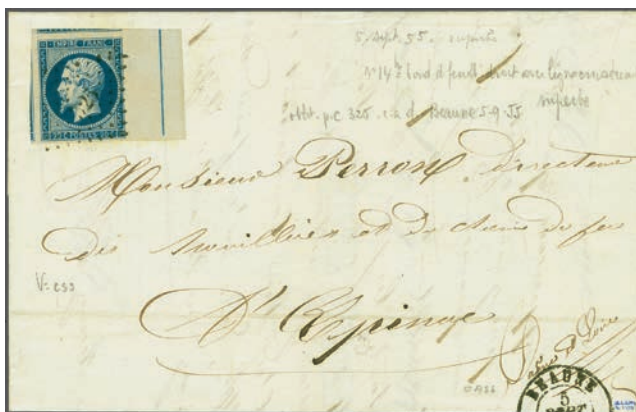 EMPIRE FRANC
20 C. POSTES 20 C.
5 Sept. 55. superbe
n° 14 bord d feuille droit avec ligne
superbe
oblit. p.c 325 c.a.d. Beaune 5-9-55
Monsieur Perron, Directeur
des houillières et du chemin de fer
D'Epinac
V=
Saône et Loire
BEAUNE
5
SEPT